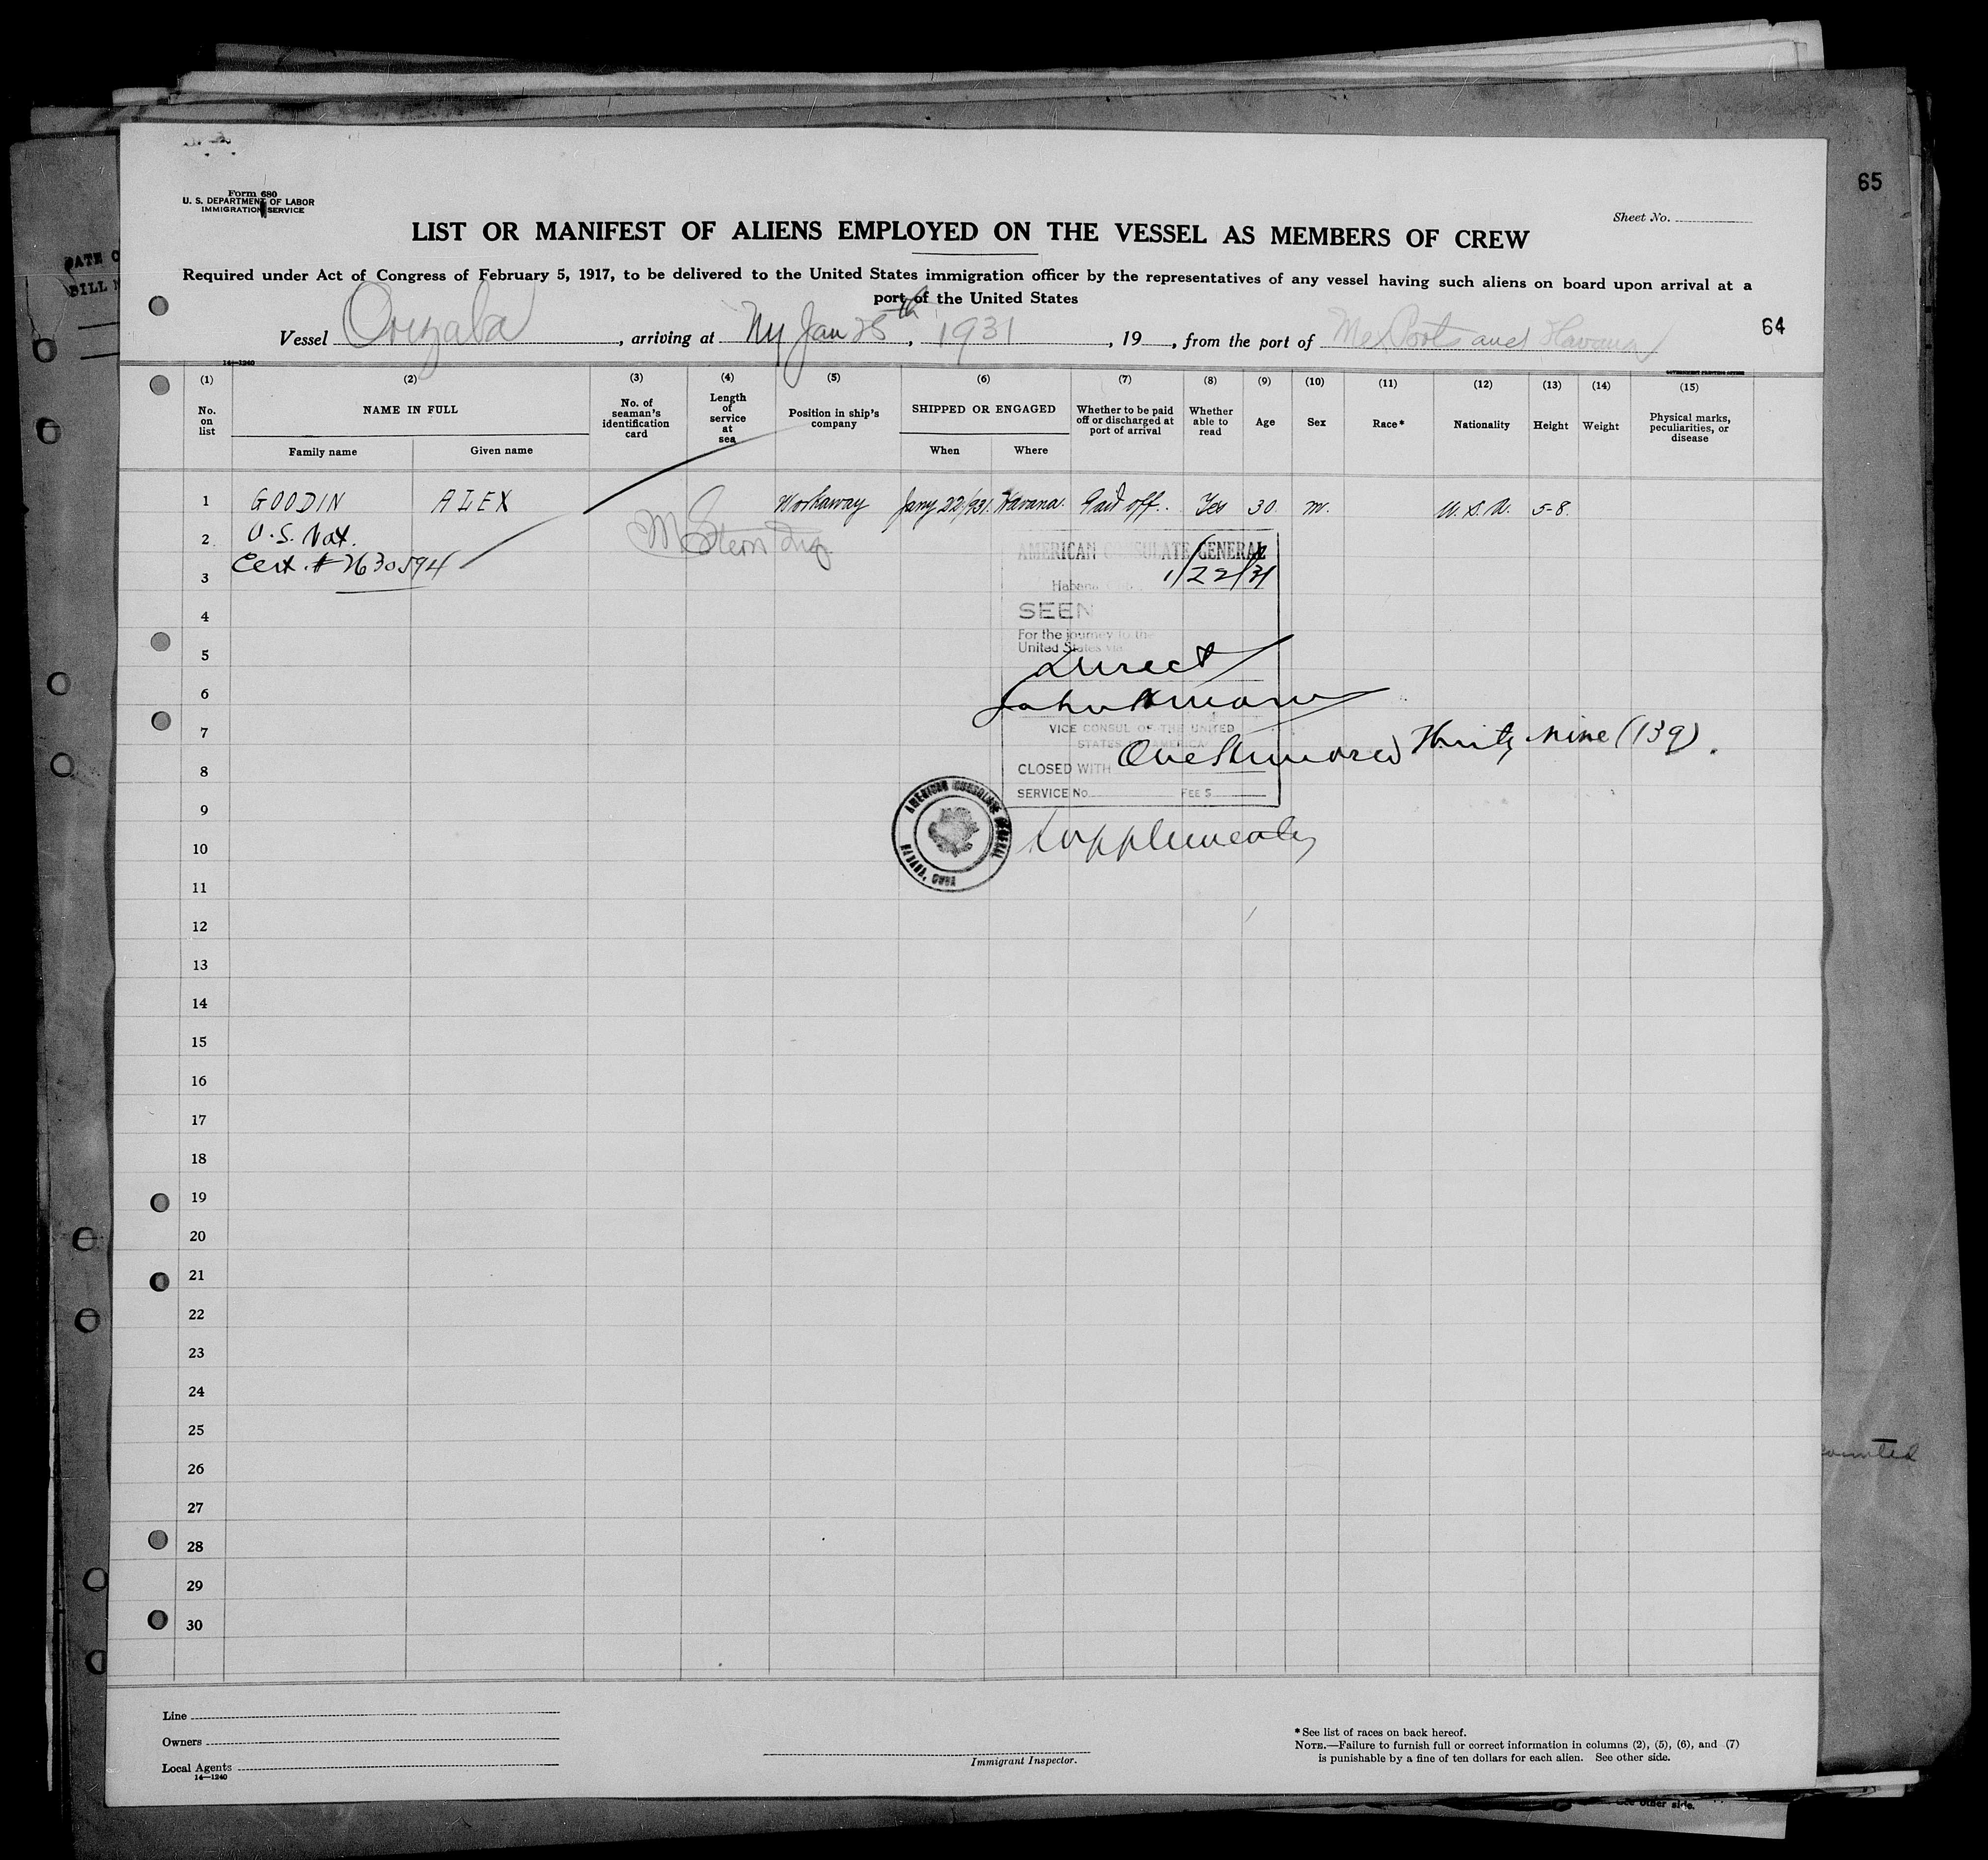 65
Form 680
U. S. DEPARTMENT OF LABOR
IMMIGRATION SERVICE
Sheet No.
LIST OR MANIFEST OF ALIENS EMPLOYED ON THE VESSEL AS MEMBERS OF CREW
Required under Act of Congress of February 5, 1917, to be delivered to the United States immigration officer by the representatives of any vessel having such aliens on board upon arrival at a
port of the United States
Vessel Orizaba, arriving at Ny Jan 25th, 1931, 19, from the port of Mex Ports and Havana
64
14-1240
GOVERNMENT PRINTING OFFICE
(1) (2) (3) (4) (5) (6) (7) (8) (9) (10) (11) (12) (13) (14) (15)
No. on list NAME IN FULL No. of seaman's identification card Length of service at sea Position in ship's company SHIPPED OR ENGAGED Whether to be paid off or discharged at port of arrival Whether able to read Age Sex Race* Nationality Height Weight Physical marks, peculiarities, or disease
Family name Given name When Where
1 GOODIN ALEX Workaway Jany 22/931. Havana. Paid off. Yes 30 m. U.S.A. 5-8.
2 U.S. Nat. M Stern Insp.
3 Cert. # 2630594
AMERICAN CONSULATE GENERAL
Habana 1/22/31
4
SEEN
For the journey to the
5 United States via
Direct
6
7
VICE CONSUL OF THE UNITED
STATES OF AMERICA
8 CLOSED WITH One Hundred Thirty Nine (139).
SERVICE No. FEE $
9
AMERICAN CONSULATE GENERAL
HABANA, CUBA
10 Supplementary
11
12
13
14
15
16
17
18
19
20
21
22
23
24
25
26
27
28
29
30
Line
Owners
Local Agents
14-1240
Immigrant Inspector.
* See list of races on back hereof.
NOTE.—Failure to furnish full or correct information in columns (2), (5), (6), and (7)
is punishable by a fine of ten dollars for each alien. See other side.
See other side.